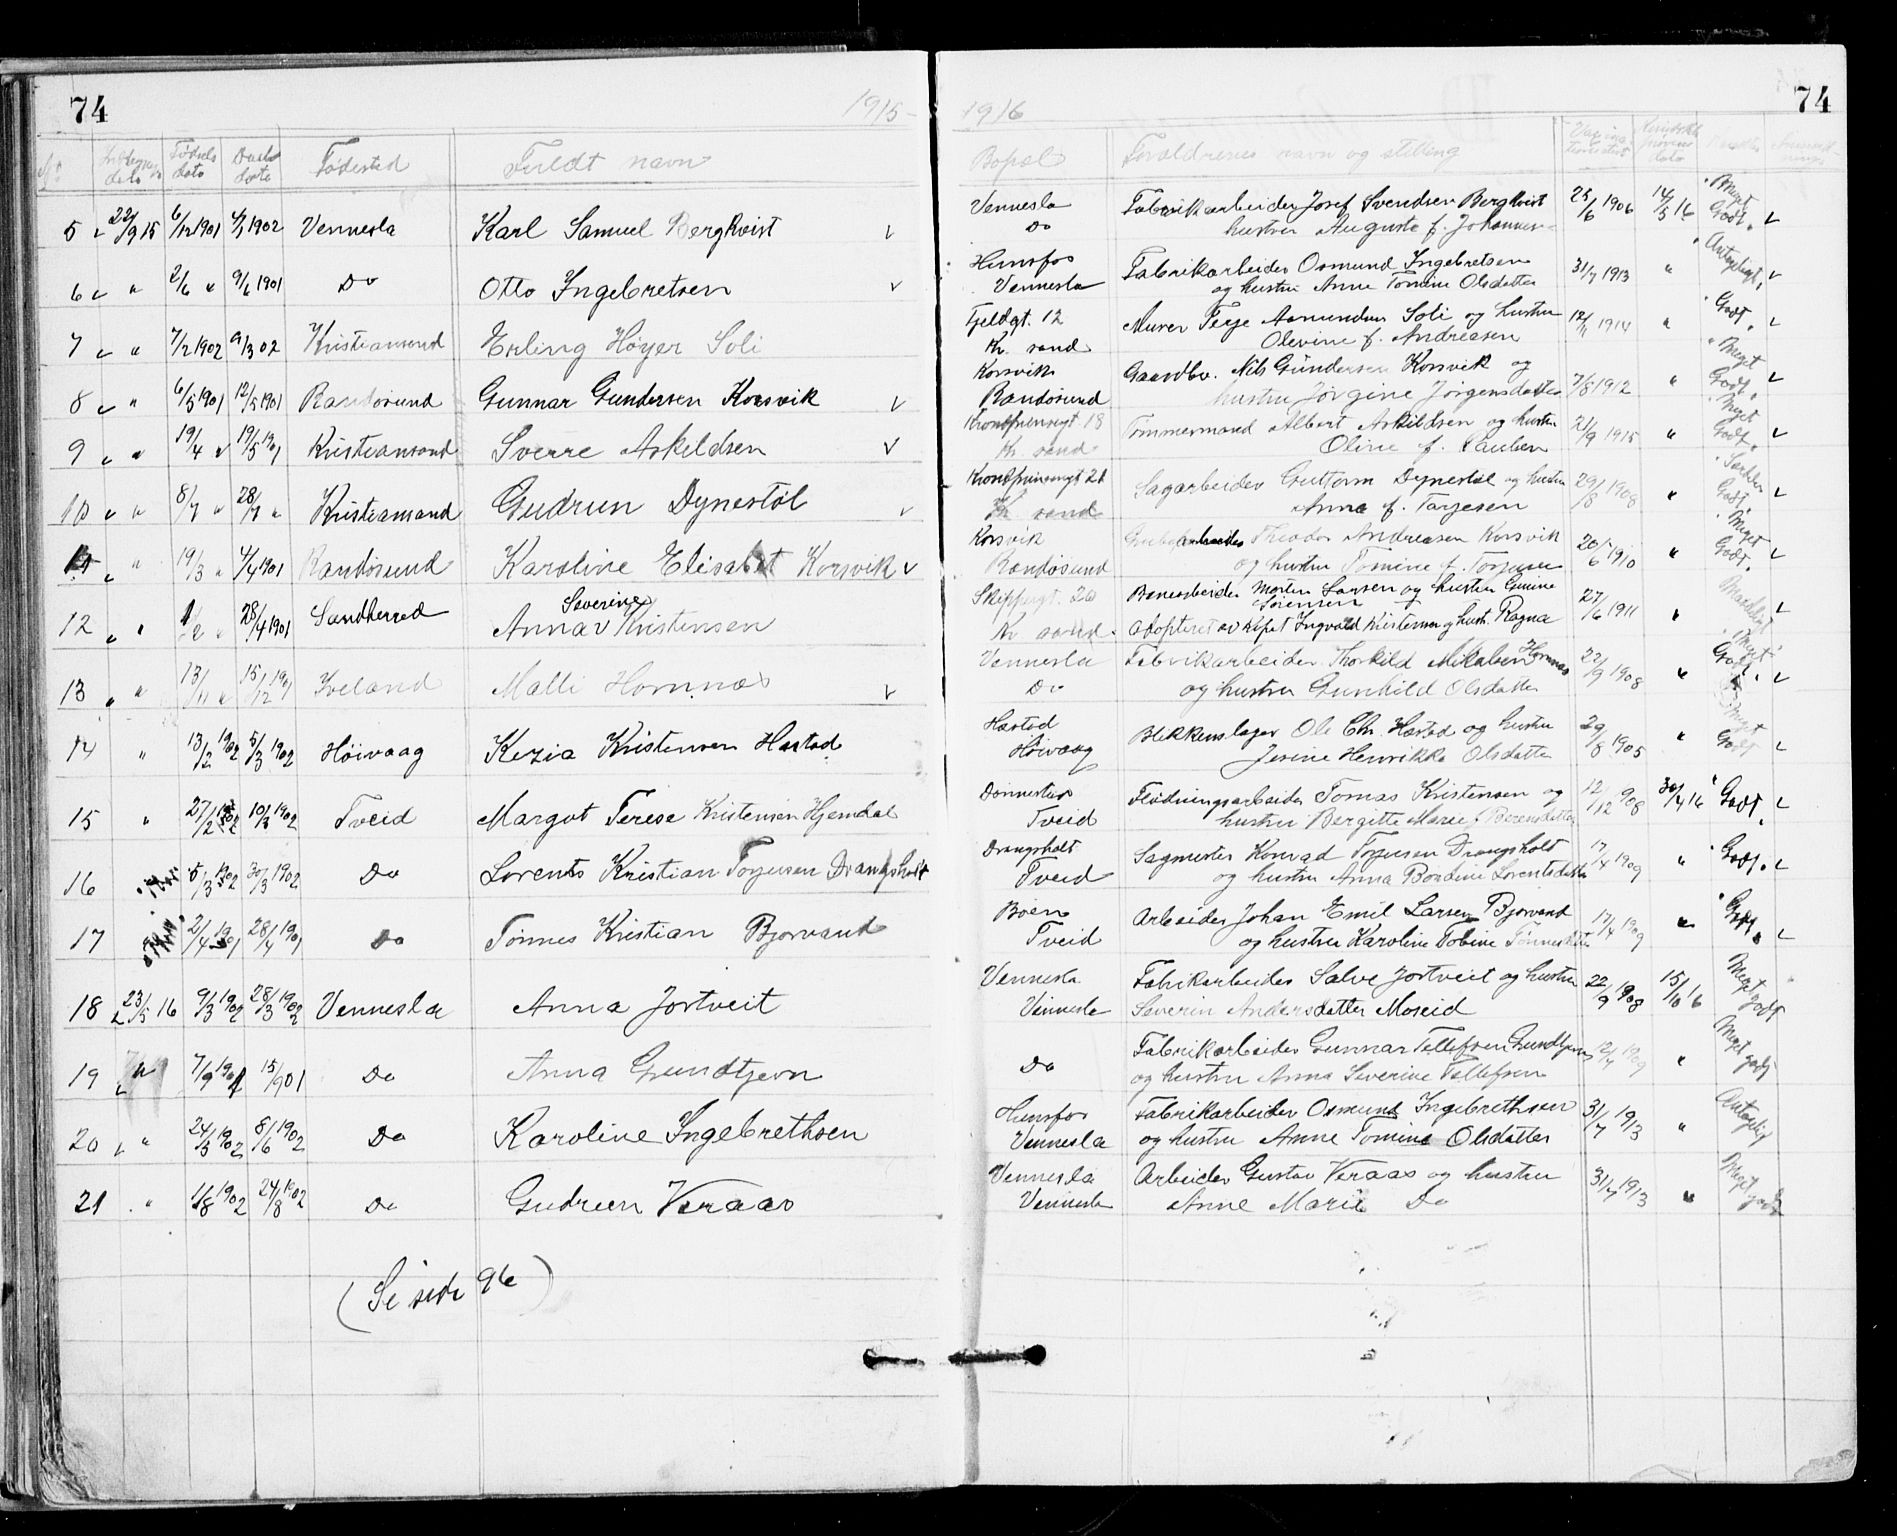 74 1915-
Fødsels dato Daabs dato Fødested Fuldt navn
5 22/9 15 6/12 1901 4/1 1902 Vennesla Karl Samuel Bergkvist
6 " 2/6 " 9/6 1901 Do Otto Ingebretsen
7 " 7/2 1902 9/3 02 Kristiansand Erling Høyer Soli
8 " 6/5 1901 12/5 1901 Randøsund Gunnar Gundersen Korsvik
9 " 19/4 " 19/5 1901 Kristiansand Sverre Askeldsen
10 " 8/7 " 28/7 " Kristiansand Gudrun Dynestöl
" 19/3 " 4/4 1901 Randøsund Karoline Elisabet Korsvik
Severine
12 " 28/4 1901 Sandherred Anna v Kristensen
13 " 13/11 " 15/12 1901 Iveland Malli Hornnæs
14 " 13/2 1902 5/3 1902 Høivaag Kezia Kristensen Hastad
15 " 27/2 1902 10/3 1902 Tveid Margot Terese Kristensen Hjemdal
16 5/3 1902 30/3 1902 Do Lorents Kristian Torjusen Drangsholt
17 2/4 1901 28/4 1901 Do Tönnes Kristian Bjorvand
18 23/5 16 9/3 1902 28/3 1902 Vennesla Anna Jortveit
19 " 7/9 1901 15/9 01 Do Anna Grundtjern
20 " 24/3 1902 8/6 1902 Do Karoline Ingebrethsen
21 " 1/8 1902 24/8 1902 Do Gudrun Veraas
(Se side 96)
1916 74
Bopæl Forældrenes navn og stilling
Vennesla Fabrikarbeider Josef Svendsen Bergkvist 25/6 1906 14/5 16 Meget
Do hustru Auguste f. Johannes- Godt.
Hunsfos Fabrikarbeider Osmund Ingebretsen 31/7 1913 " Antageligt
Vennesla og hustru Anne Tomine Olsdatter
Fjeldgt. 12 Murer Terje Aamundsen Soli og hustru 1914 " Godt.
Kr. sand Olevine f. Andreasen
Korsvik Gaardbr. Nils Gundersen Korsvik og 7/8 1912 " Meget
Randøsund hustru Jørgine Jørgensdatter Godt.
Kronprinsensgt. 18 Tömmermand Albert Askildsen og hustru 21/9 1915 " Meget
Kr. sand Oline f. Paulsen Godt.
Kronprinsensgt 21 Sagarbeider Guttorm Dynestøl og hustru 29/8 1908 " Særdeles
Kr. sand Anna f. Tarjesen Godt.
Korsvik Theodor Andreasen Korsvik 20/6 1910 " Meget
Randøsund og hustru Tomine f. Torjusen Godt.
Skippergt. 20 Banearbeider Morten Larsen og hustru Gemine 27/6 1911 "
Sörensen
Kr. sand. Adopteret av Ingvald Kristensen og hust. Ragna
Vennesla Fabrikarbeider Thorkild Mikalsen Hornnæs 22/9 1908 " Meget
Do og hustru Gunhild Olsdatter Godt.
Hastad Blekkenslager Ole Chr. Hastad og hustru 29/8 1905 " Meget
Høivaag Jesine Henrikka Olsdatter Godt
Dønnestad Flödningsarbeider Tomas Kristensen og 12/12 908 30/4 16 Godt.
Tveid hustru Bergitte Marie Berentsdatter
Drangsholt Sagmester Konrad Torjusen Drangsholt 17/4 1909 " Godt.
Tveid og hustru Anna Bondine Lorentsdatter
Boen Arbeider Johan Emil Larsen Bjorvand 17/4 1909 " Godt.
Tveid og hustru Karoline Tobine Tönnesdatter
Vennesla Fabrikarbeider Salve Jortveit og hustru 22/9 1908 15/10 16 Meget
Vennesla Severin Andersdatter Moseid godt
Do Fabrikarbeider Gunnar Tellefsen Grundtjern 12/4 1909 " Meget godt
og hustru Anna Severine Tellefsen
Hunsfos Fabrikarbeider Osmund Ingebrethsen 31/7 1913 " Antagelig
Vennesla og hustru Anne Tomine Olsdatter
Vennesla Arbeider Gustav Veraas og hustru 31/7 1913 " Meget godt
Vennesla Anne Marie Do